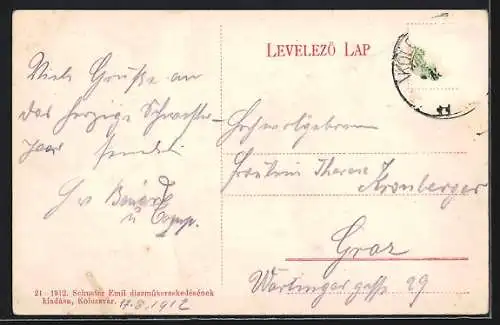 LEVELEZŐ LAP
KOLO
Viele Grüße an
das herzige Schwester-
paar sendet
Hochwohlgeboren
Fräulein Therese
Kronberger
Graz
Wartingergasse 29
21 - 1912. Schuster Emil diszműkereskedésének
kiadása, Kolozsvár. 17.8.1912